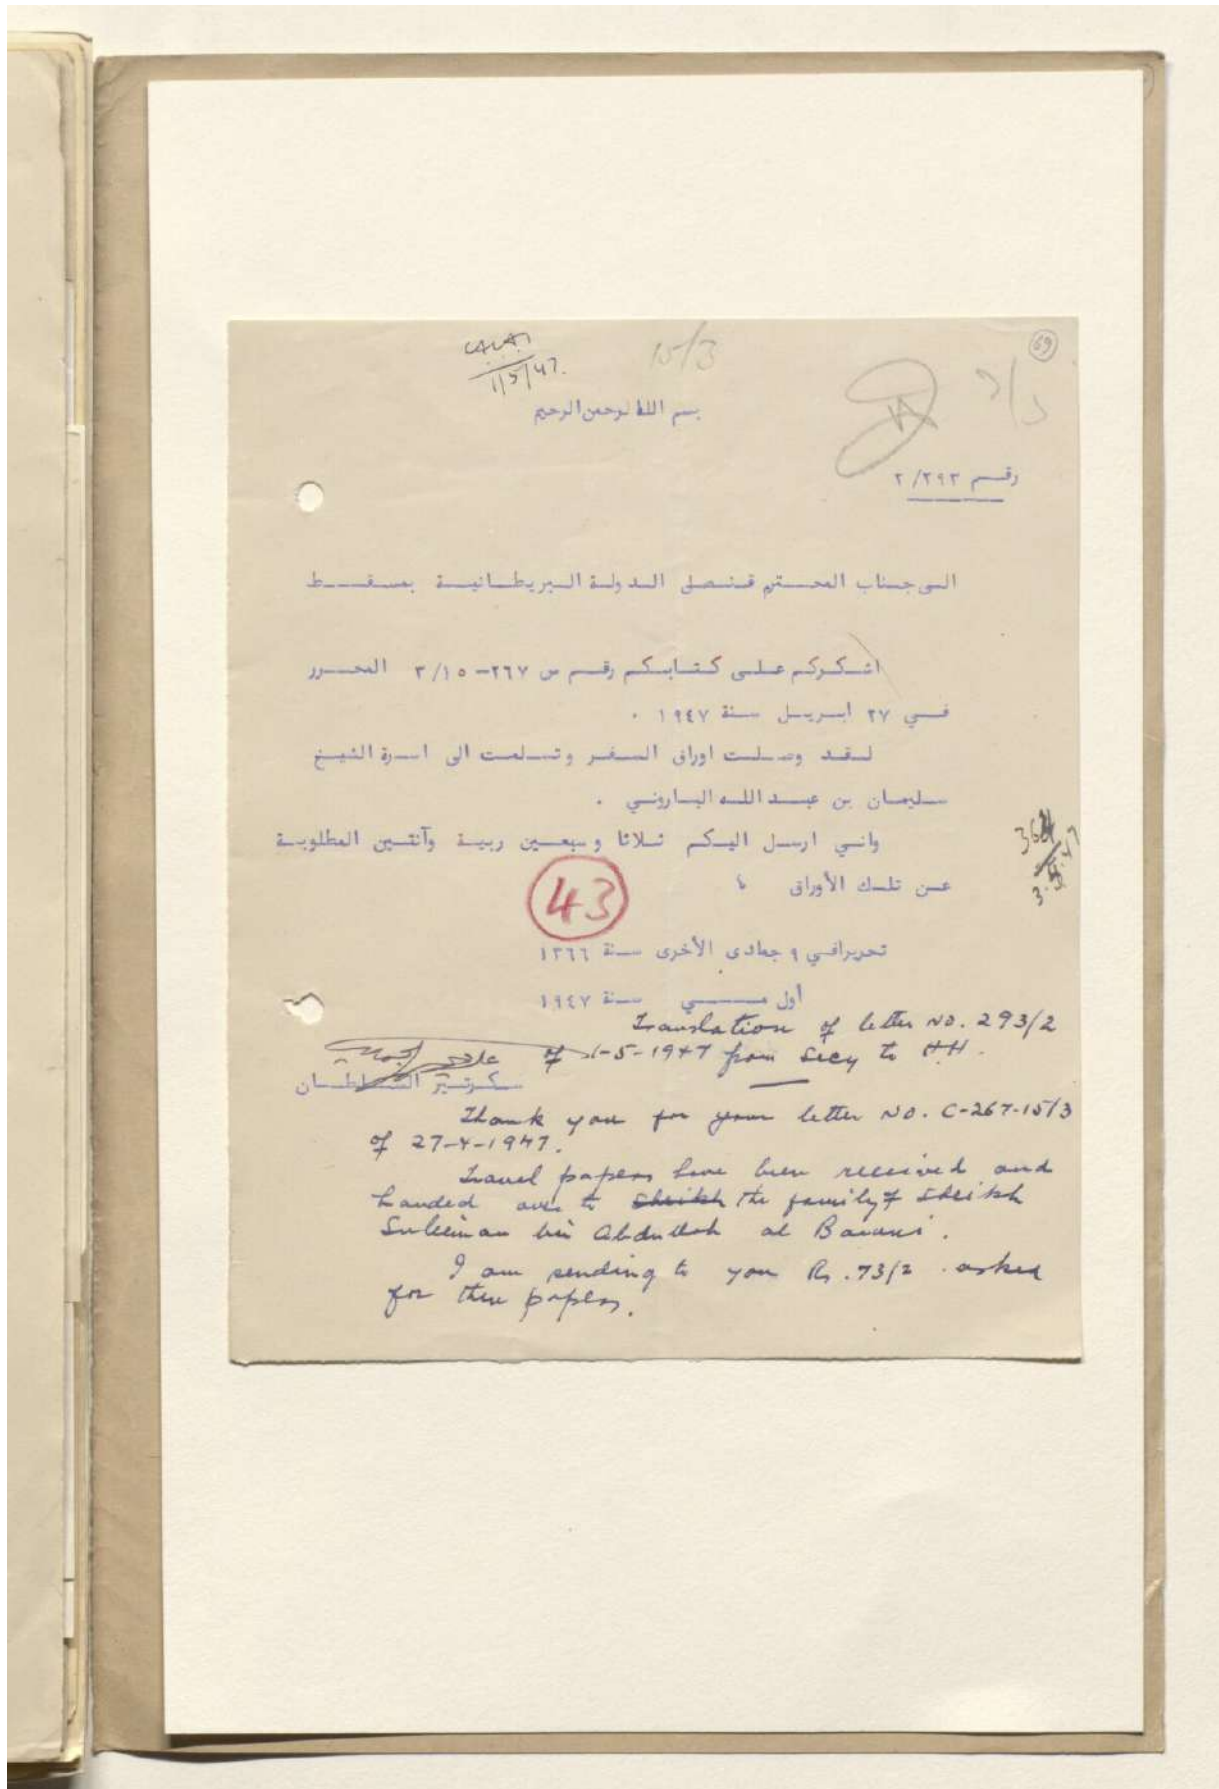 15/3
69
1/5/47.
بسم الله الرحمن الرحيم
رقم ٢/٢٩٣
الى جناب المحترم قنصل الدولة البريطانية بمسقط
اشكركم على كتابكم رقم س ٢٦٧-٣/١٥ المحرر
في ٢٧ ابريل سنة ١٩٤٧ .
لقد وصلت اوراق السفر وتسلمت الى اسرة الشيخ
سليمان بن عبد الله الباروني .
واني ارسل اليكم ثلاثا وسبعين ربية وآنتين المطلوبة
عن تلك الأوراق
364
3.5.47
43
تحريرا في ٩ جمادى الأخرى سنة ١٣٦٦
أول مي سنة ١٩٤٧
Translation of letter No. 293/2
of 1-5-1947 from Secy to H.H.
سكرتير السلطان
Thank you for your letter No. C-267-15/3
of 27-4-1947.
Travel papers have been received and
handed over to Sheikh the family of Sheikh
Suleiman bin Abdullah al Baruni.
I am sending to you Rs. 73/2 asked
for these papers.